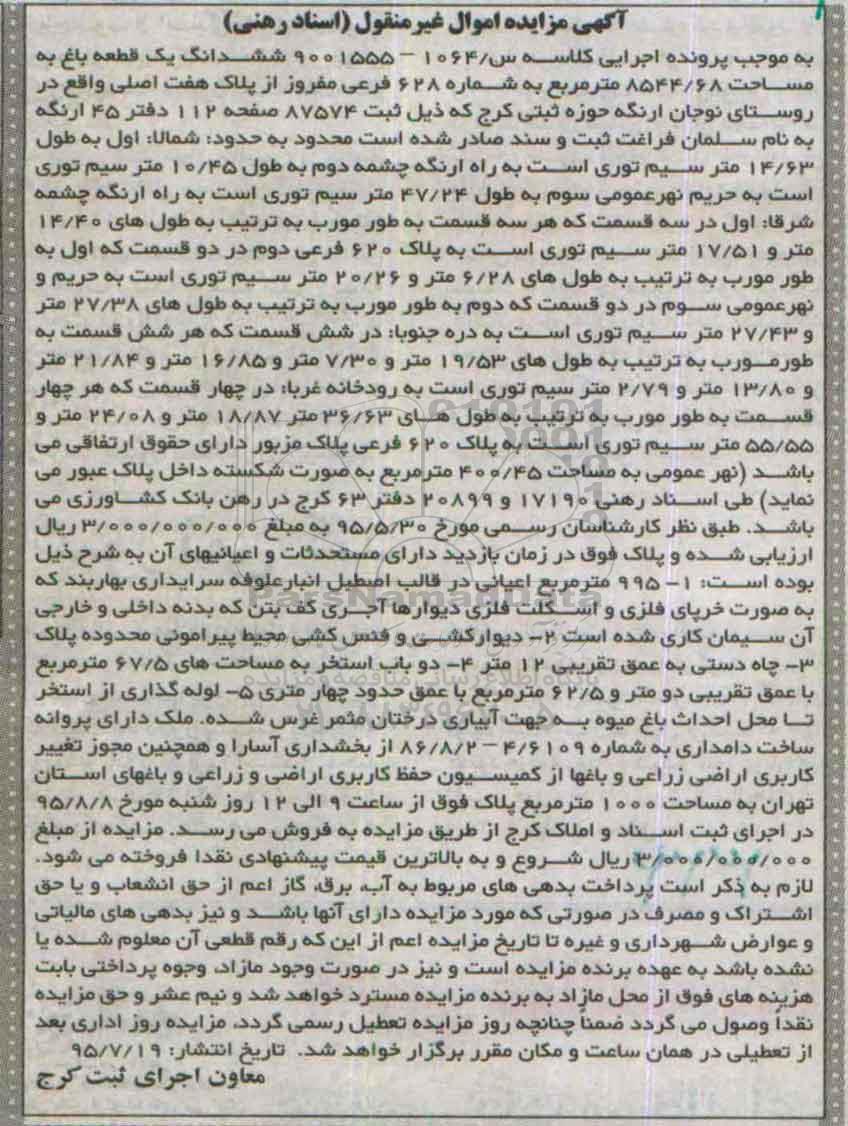 آگهی مزایده اموال غیرمنقول (اسناد رهنی)
به موجب پرونده اجرایی کلاسه س/۱۰۶۴ – ۹۰۰۱۵۵۵ ششدانگ یک قطعه باغ به
مساحت ۸۵۴۴/۶۸ مترمربع به شماره ۶۲۸ فرعی مفروز از پلاک هفت اصلی واقع در
روستای نوجان ارنگه حوزه ثبتی کرج که ذیل ثبت ۸۷۵۷۴ صفحه ۱۱۲ دفتر ۴۵ ارنگه
به نام سلمان فراغت ثبت و سند صادر شده است محدود به حدود: شمالا: اول به طول
۱۴/۶۳ متر سیم توری است به راه ارنگه چشمه دوم به طول ۱۰/۴۵ متر سیم توری
است به حریم نهرعمومی سوم به طول ۴۷/۲۴ متر سیم توری است به راه ارنگه چشمه
شرقا: اول در سه قسمت که هر سه قسمت به طور مورب به ترتیب به طول های ۱۴/۴۰
متر و ۱۷/۵۱ متر سیم توری است به پلاک ۶۲۰ فرعی دوم در دو قسمت که اول به
طور مورب به ترتیب به طول های ۶/۲۸ متر و ۲۰/۲۶ متر سیم توری است به حریم و
نهرعمومی سوم در دو قسمت که دوم به طور مورب به ترتیب به طول های ۲۷/۳۸ متر
و ۲۷/۴۳ متر سیم توری است به دره جنوبا: در شش قسمت که هر شش قسمت به
طورمورب به ترتیب به طول های ۱۹/۵۳ متر و ۷/۳۰ متر و ۱۶/۸۵ متر و ۲۱/۸۴ متر
و ۱۳/۸۰ متر و ۲/۷۹ متر سیم توری است به رودخانه غربا: در چهار قسمت که هر چهار
قسمت به طور مورب به ترتیب به طول های ۳۶/۶۳ متر ۱۸/۸۷ متر و ۲۴/۰۸ متر و
۵۵/۵۵ متر سیم توری است به پلاک ۶۲۰ فرعی پلاک مزبور دارای حقوق ارتفاقی می
باشد (نهر عمومی به مساحت ۴۰۰/۴۵ مترمربع به صورت شکسته داخل پلاک عبور می
نماید) طی اسناد رهنی ۱۷۱۹۰ و ۲۰۸۹۹ دفتر ۶۳ کرج در رهن بانک کشاورزی می
باشد. طبق نظر کارشناسان رسمی مورخ ۹۵/۵/۳۰ به مبلغ ۳/۰۰۰/۰۰۰/۰۰۰ ریال
ارزیابی شده و پلاک فوق در زمان بازدید دارای مستحدثات و اعیانیهای آن به شرح ذیل
بوده است: ۱- ۹۹۵ مترمربع اعیانی در قالب اصطبل انبارعلوفه سرایداری بهاربند که
به صورت خرپای فلزی و اسکلت فلزی دیوارها آجری کف بتن که بدنه داخلی و خارجی
آن سیمان کاری شده است ۲- دیوارکشی و فنس کشی محیط پیرامونی محدوده پلاک
۳- چاه دستی به عمق تقریبی ۱۲ متر ۴- دو باب استخر به مساحت های ۶۷/۵ مترمربع
با عمق تقریبی دو متر و ۶۲/۵ مترمربع با عمق حدود چهار متری ۵- لوله گذاری از استخر
تا محل احداث باغ میوه به جهت آبیاری درختان مثمر غرس شده. ملک دارای پروانه
ساخت دامداری به شماره ۴/۶۱۰۹ – ۸۶/۸/۲ از بخشداری آسارا و همچنین مجوز تغییر
کاربری اراضی زراعی و باغها از کمیسیون حفظ کاربری اراضی و زراعی و باغهای استان
تهران به مساحت ۱۰۰۰ مترمربع پلاک فوق از ساعت ۹ الی ۱۲ روز شنبه مورخ ۹۵/۸/۸
در اجرای ثبت اسناد و املاک کرج از طریق مزایده به فروش می رسد. مزایده از مبلغ
۳/۰۰۰/۰۰۰/۰۰۰ ریال شروع و به بالاترین قیمت پیشنهادی نقدا فروخته می شود.
لازم به ذکر است پرداخت بدهی های مربوط به آب، برق، گاز اعم از حق انشعاب و یا حق
اشتراک و مصرف در صورتی که مورد مزایده دارای آنها باشد و نیز بدهی های مالیاتی
و عوارض شهرداری و غیره تا تاریخ مزایده اعم از این که رقم قطعی آن معلوم شده یا
نشده باشد به عهده برنده مزایده است و نیز در صورت وجود مازاد، وجوه پرداختی بابت
هزینه های فوق از محل مازاد به برنده مزایده مسترد خواهد شد و نیم عشر و حق مزایده
نقداً وصول می گردد ضمناً چنانچه روز مزایده تعطیل رسمی گردد، مزایده روز اداری بعد
از تعطیلی در همان ساعت و مکان مقرر برگزار خواهد شد. تاریخ انتشار: ۹۵/۷/۱۹
معاون اجرای ثبت کرج
ParsNamadData